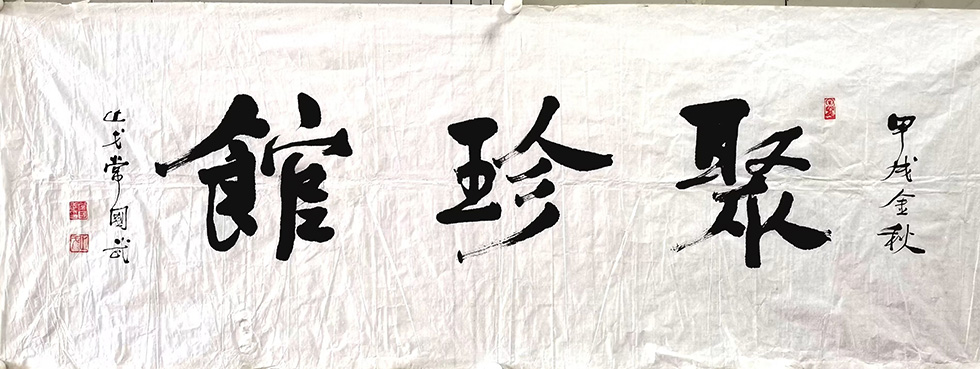 甲戌金秋
聚珍館
止戈常國武